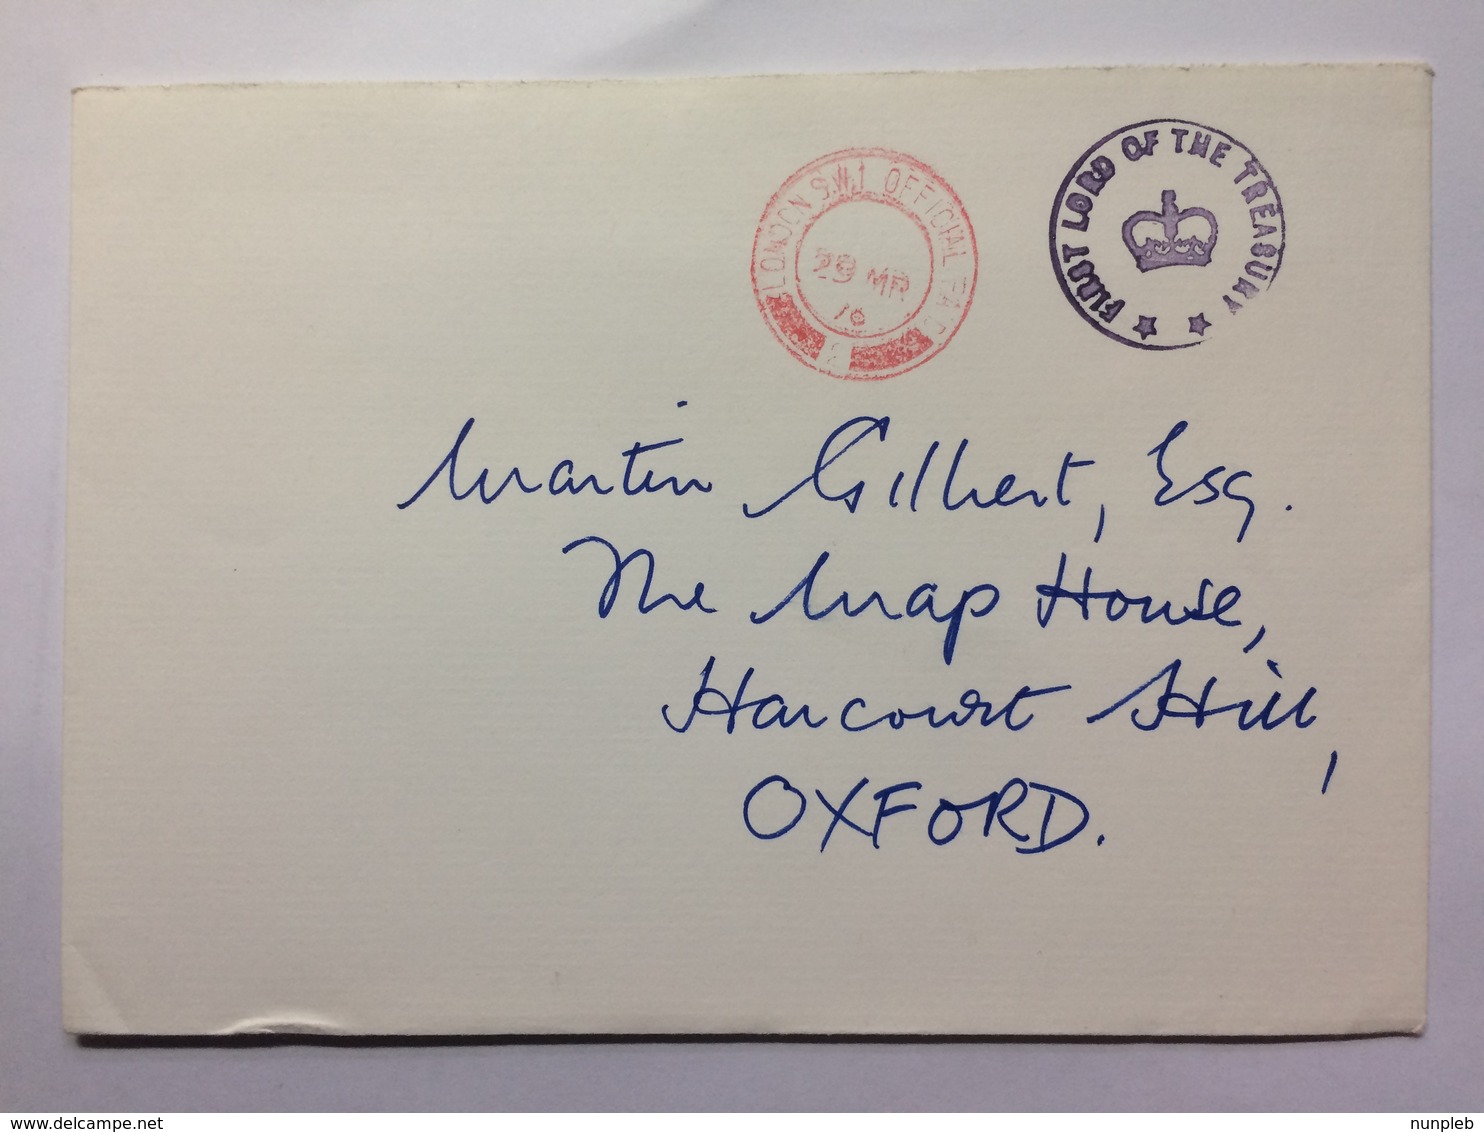 FIRST LORD OF THE TREASURY
LONDON S.W.1 OFFICIAL PAID
29 MR
76
2
Martin Gilbert, Esq.
The Map House,
Harcourt Hill,
OXFORD.
delcampe.net
nunpleb